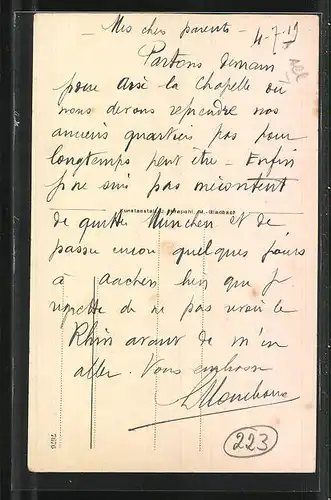 - Mes chers parents -
4-7-19
All
Partons demain
pour Aix-la Chapelle où
nous devons reprendre nos
anciens quartiers pas pour
longtemps peut être - Enfin
je ne suis pas mécontent
M.-Gladbach
de quitter München et de
passer encore quelques jours
à Aachen bien que je
regrette de ne pas revoir le
Rhin avant de m'en
aller. Vous embrasse
7676
223